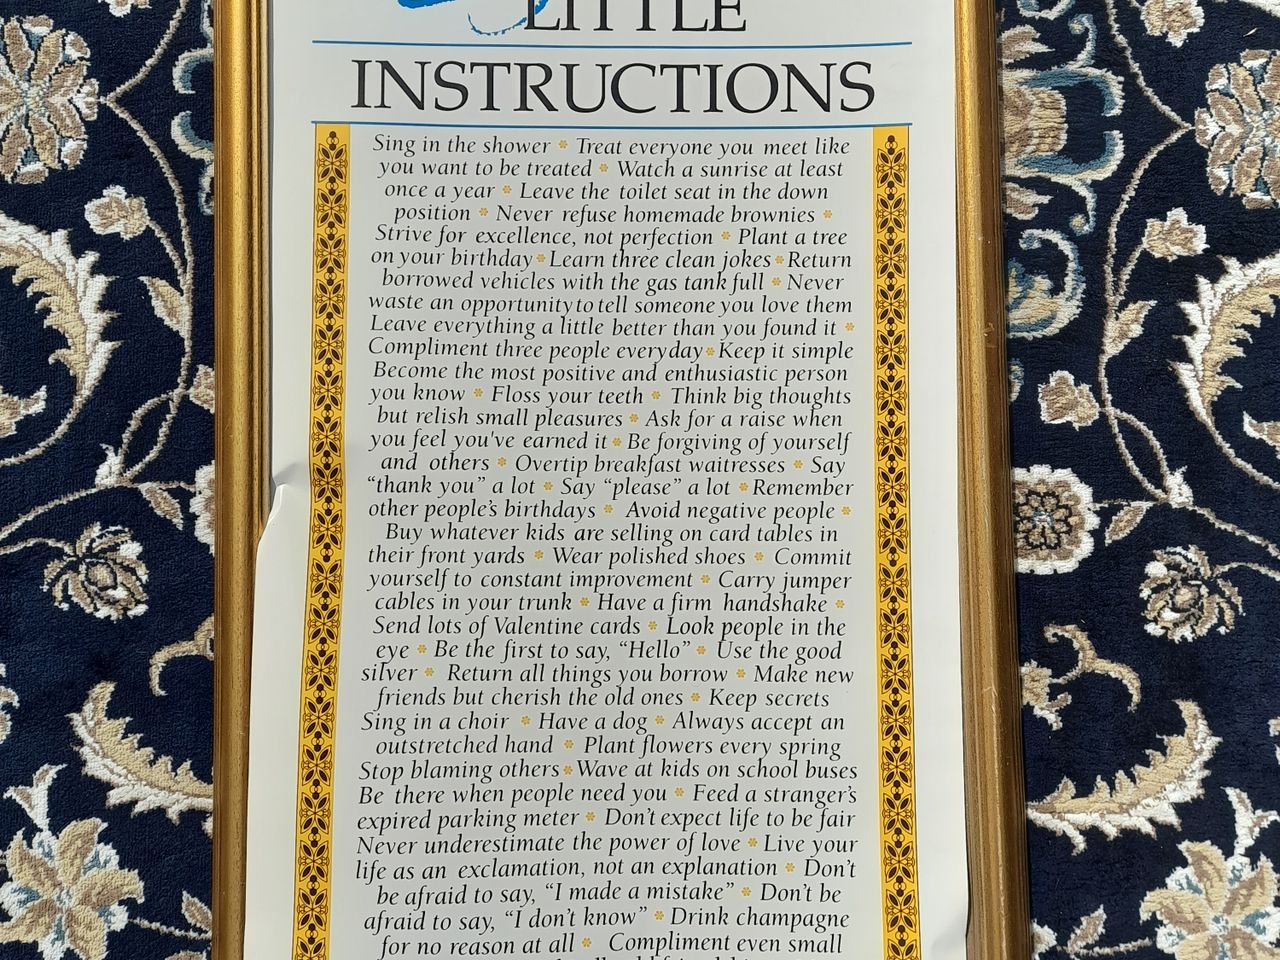 LITTLE
INSTRUCTIONS
Sing in the shower * Treat everyone you meet like
you want to be treated * Watch a sunrise at least
once a year * Leave the toilet seat in the down
position * Never refuse homemade brownies *
Strive for excellence, not perfection * Plant a tree
on your birthday * Learn three clean jokes * Return
borrowed vehicles with the gas tank full * Never
waste an opportunity to tell someone you love them
Leave everything a little better than you found it *
Compliment three people everyday * Keep it simple
Become the most positive and enthusiastic person
you know * Floss your teeth * Think big thoughts
but relish small pleasures * Ask for a raise when
you feel you've earned it * Be forgiving of yourself
and others * Overtip breakfast waitresses * Say
“thank you” a lot * Say “please” a lot * Remember
other people's birthdays * Avoid negative people *
Buy whatever kids are selling on card tables in
their front yards * Wear polished shoes * Commit
yourself to constant improvement * Carry jumper
cables in your trunk * Have a firm handshake *
Send lots of Valentine cards * Look people in the
eye * Be the first to say, “Hello” * Use the good
silver * Return all things you borrow * Make new
friends but cherish the old ones * Keep secrets
Sing in a choir * Have a dog * Always accept an
outstretched hand * Plant flowers every spring
Stop blaming others * Wave at kids on school buses
Be there when people need you * Feed a stranger's
expired parking meter * Don't expect life to be fair
Never underestimate the power of love * Live your
life as an exclamation, not an explanation * Don't
be afraid to say, “I made a mistake” * Don't be
afraid to say, “I don't know” * Drink champagne
for no reason at all * Compliment even small